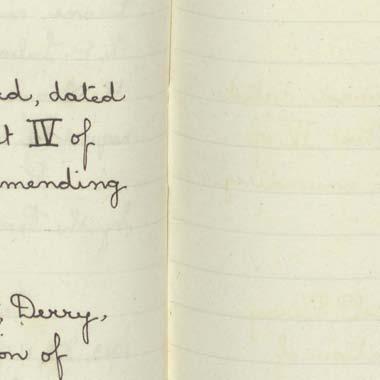 ed, dated
t IV of
mending
, Derry,
on of